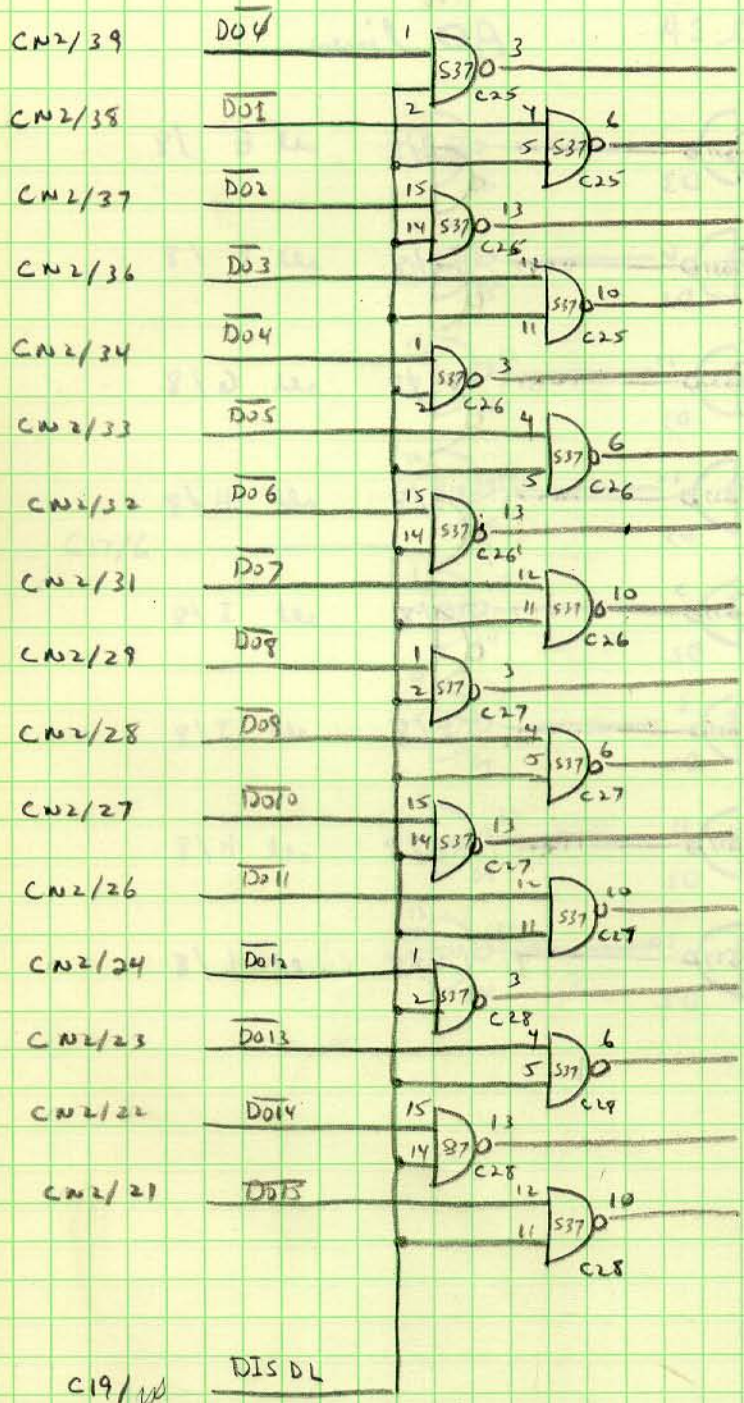 CN2/39 D̅O̅0̅ 1 2 S37 3 C25
CN2/38 D̅O̅1̅ 4 5 S37 6 C25
CN2/37 D̅O̅2̅ 15 14 S37 13 C25
CN2/36 D̅O̅3̅ 12 11 S37 10 C25
CN2/34 D̅O̅4̅ 1 2 S37 3 C26
CN2/33 D̅O̅5̅ 4 5 S37 6 C26
CN2/32 D̅O̅6̅ 15 14 S37 13 C26
CN2/31 D̅O̅7̅ 12 11 S37 10 C26
CN2/29 D̅O̅8̅ 1 2 S37 3 C27
CN2/28 D̅O̅9̅ 4 5 S37 6 C27
CN2/27 D̅O̅1̅0̅ 15 14 S37 13 C27
CN2/26 D̅O̅1̅1̅ 12 11 S37 10 C27
CN2/24 D̅O̅1̅2̅ 1 2 S37 3 C28
CN2/23 D̅O̅1̅3̅ 4 5 S37 6 C28
CN2/22 D̅O̅1̅4̅ 15 14 S37 13 C28
CN2/21 D̅O̅1̅5̅ 12 11 S37 10 C28
C19/ DISDL